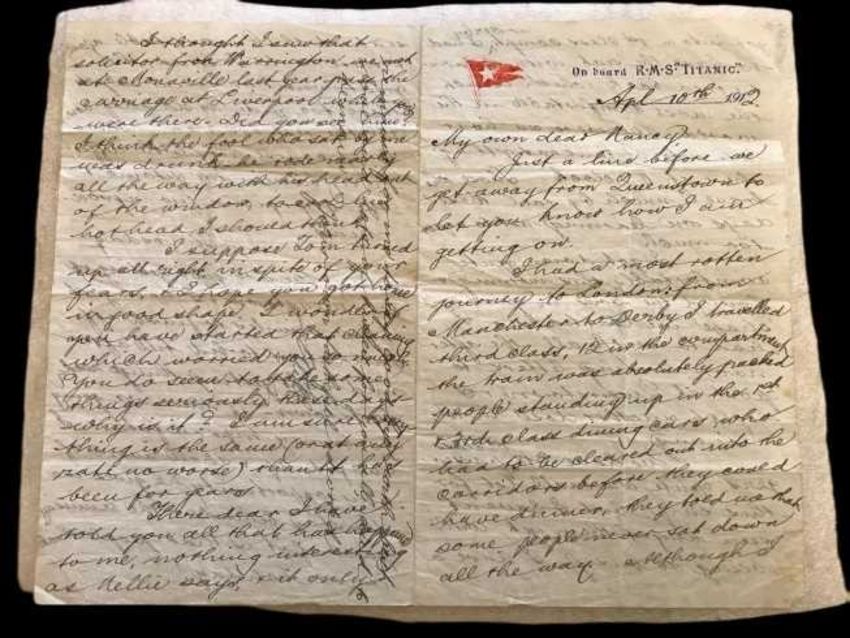 On board R·M·S "TITANIC."
Apl 10th 1912.
My own dear Nancy
Just a line before we
get away from Queenstown to
let you know how I am
getting on.
I had a most rotten
journey to London: from
Manchester to Derby I travelled
third class, 12 in the compartment
the train was absolutely packed
people standing up in the 1st
& 3rd class dining cars, who
had to be cleared out into the
corridors before they could
have dinner, they told us that
some people never sat down
all the way. Although I
I thought I saw that
solicitor from Warrington we met
at last year pass the
carriage at Liverpool while
were there. Did you see him?
I think the fool who sat by me
was drunk, he rode nearly
all the way with his head out
of the window, to cool his
hot head I should think.
I suppose Tom turned
up all right in spite of your
fears, & I hope you got home
in good shape. I wonder if
you have started that cleaning
which worried you so much.
You do seem to take some
things seriously these days
why is it? I am sure
thing is the same (or at any
rate no worse) than it has
been for years
There dear I have
told you all that has happened
to me, nothing interesting
as Nellie says, & it only